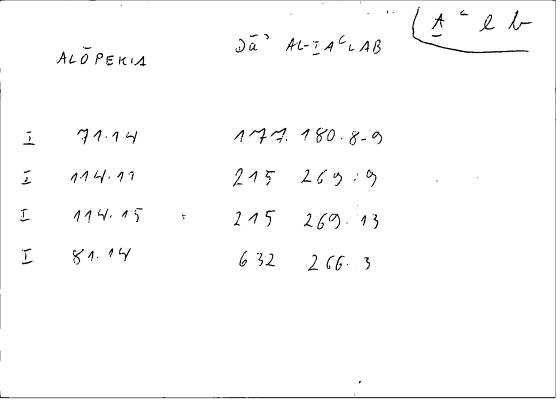 A ᶜ l b
ALŌPEKIA DĀʾ AL-ṮAᶜLAB
I 71.14 177. 180.8-9
I 114.11 215 269.9
I 114.15 215 269.13
I 81.14 632 266.3